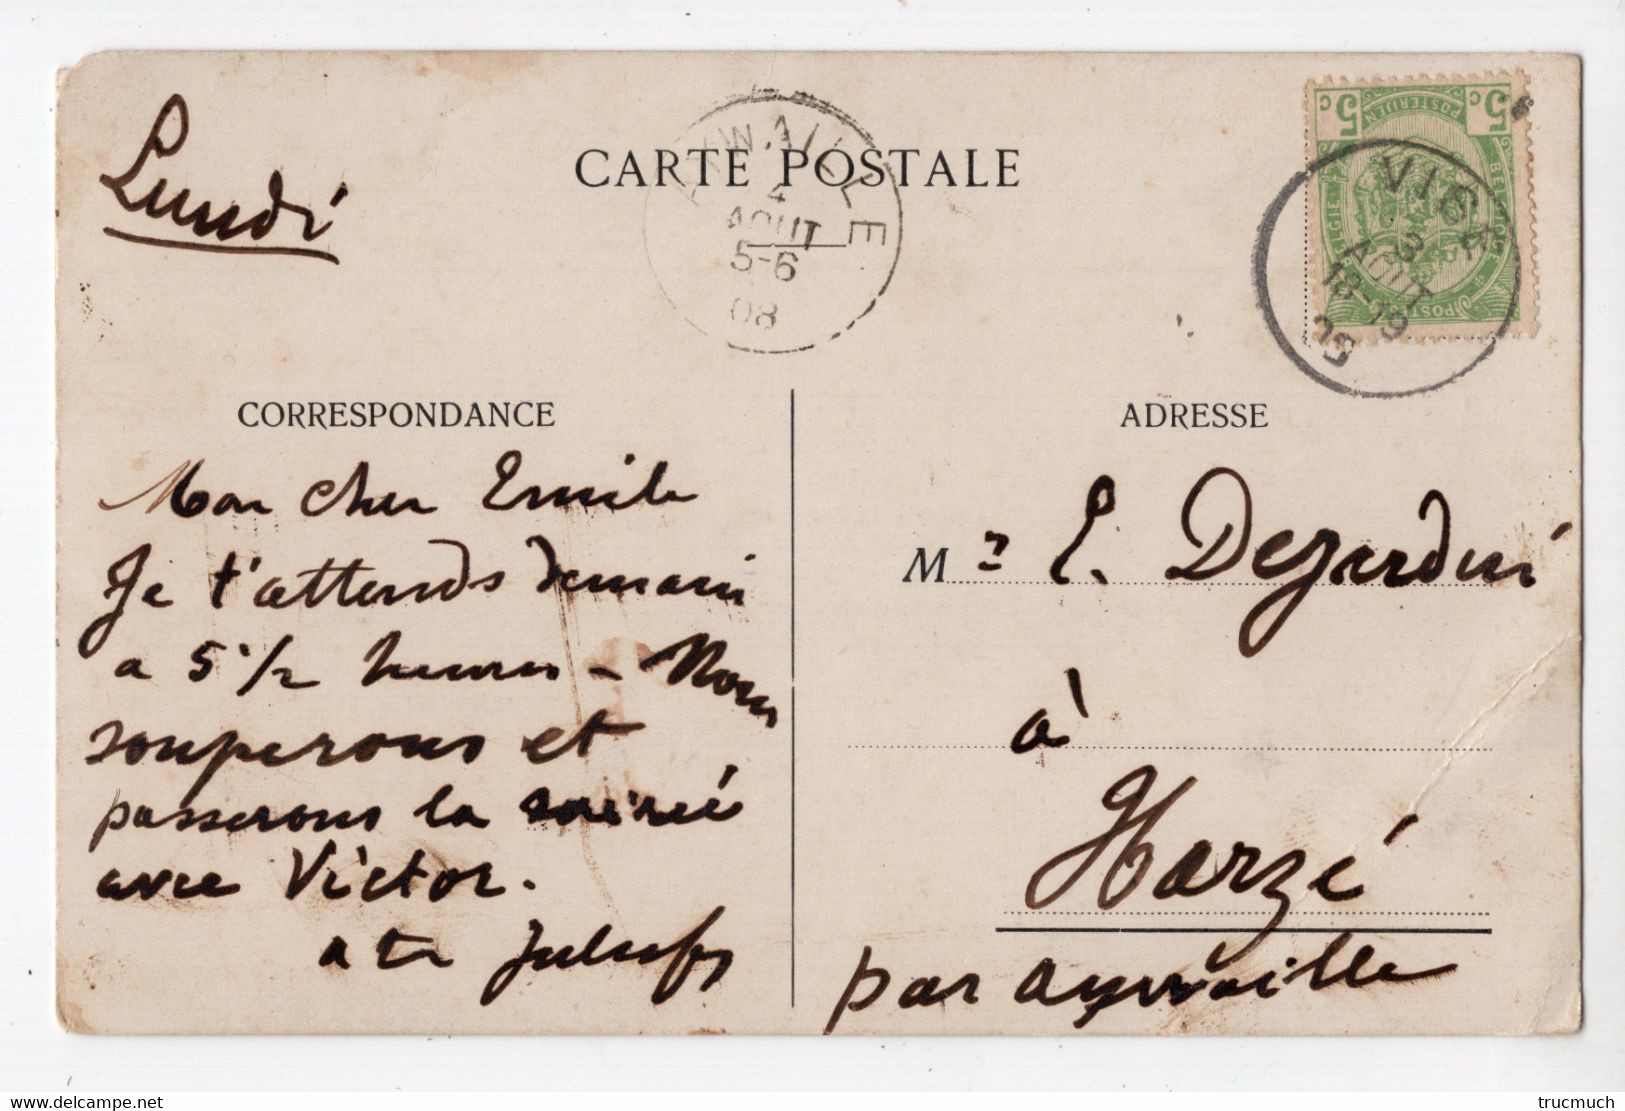 Lundi
CARTE POSTALE
AYWAILLE
4
AOUT
5-6
08
5c POSTERIJEN 5c
VISÉ
3
AOUT
18-19
CORRESPONDANCE
ADRESSE
Mon cher Emile
Je t'attends demain
a 5 1/2 heures - Nous
souperons et
passerons la soirée
avec Victor.
a toi
Mr E. Dejardin
à
Harzé
par Aywaille
trucmuch www.delcampe.net